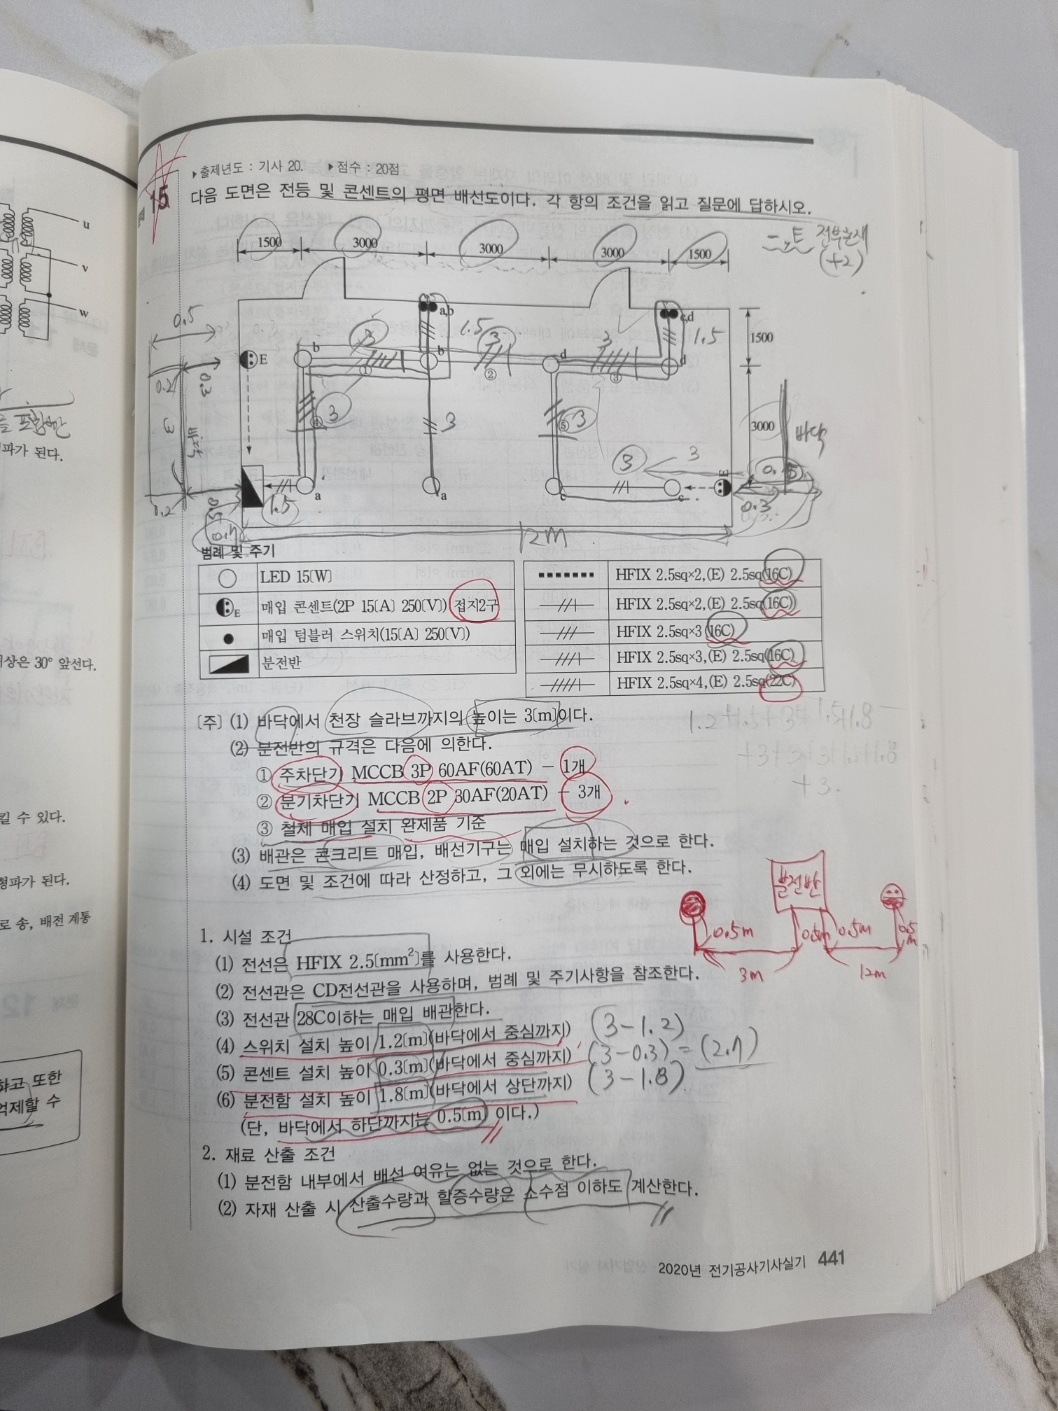 u
v
w
파가 된다.
상은 30° 앞선다.
킬 수 있다.
형파가 된다.
로 송, 배전 계통
하고 또한
억제할 수
▸출제년도 : 기사 20. ▸점수 : 20점
15 다음 도면은 전등 및 콘센트의 평면 배선도이다. 각 항의 조건을 읽고 질문에 답하시오.
1500 3000 3000 3000 1500
(+2)
0.5
a,b 1.5 c,d 1.5 1500
E b 3 b 3 d 3 d
① ② ③
0.2 0.3
3 바닥
④ 3 3 ⑤ 3 3000 바닥
3 3
E
a a c c
0.2 0.5 1.5 0.3
12M
범례 및 주기
LED 15[W]
E 매입 콘센트(2P 15[A] 250[V]) 접지2구
매입 텀블러 스위치(15[A] 250[V])
분전반
HFIX 2.5sq×2,(E) 2.5sq(16C)
HFIX 2.5sq×2,(E) 2.5sq(16C)
HFIX 2.5sq×3(16C)
HFIX 2.5sq×3,(E) 2.5sq(16C)
HFIX 2.5sq×4,(E) 2.5sq(22C)
[주] (1) 바닥에서 천장 슬라브까지의 높이는 3[m]이다.
(2) 분전반의 규격은 다음에 의한다.
① 주차단기 MCCB 3P 60AF(60AT) - 1개
② 분기차단기 MCCB 2P 30AF(20AT) - 3개
③ 철제 매입 설치 완제품 기준
(3) 배관은 콘크리트 매입, 배선기구는 매입 설치하는 것으로 한다.
(4) 도면 및 조건에 따라 산정하고, 그 외에는 무시하도록 한다.
분전반
0.5m 0.5m 0.5m 0.5m
3m 12m
1. 시설 조건
(1) 전선은 HFIX 2.5[mm²]를 사용한다.
(2) 전선관은 CD전선관을 사용하며, 범례 및 주기사항을 참조한다.
(3) 전선관 28C이하는 매입 배관한다.
(4) 스위치 설치 높이 1.2[m](바닥에서 중심까지) (3-1.2)
(5) 콘센트 설치 높이 0.3[m](바닥에서 중심까지) (3-0.3) = (2.7)
(6) 분전함 설치 높이 1.8[m](바닥에서 상단까지) (3-1.8)
(단, 바닥에서 하단까지는 0.5[m] 이다.)
2. 재료 산출 조건
(1) 분전함 내부에서 배선 여유는 없는 것으로 한다.
(2) 자재 산출 시 산출수량과 할증수량은 소수점 이하도 계산한다.
2020년 전기공사기사실기 441